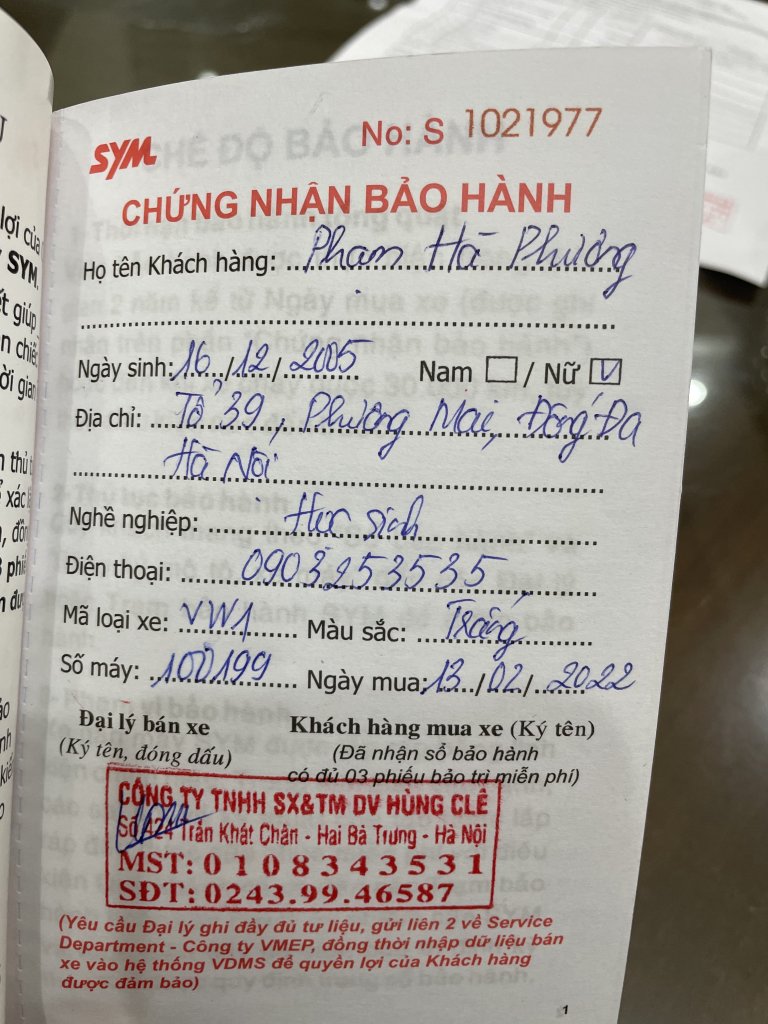 SYM
No: S 1021977
CHỨNG NHẬN BẢO HÀNH
Họ tên Khách hàng: Phạm Hà Phương
Ngày sinh: 16/12/2005 Nam / Nữ V
Địa chỉ: Tổ 39, Phương Mai, Đống Đa
Hà Nội
Nghề nghiệp: Học sinh
Điện thoại: 0903253535
Mã loại xe: VW1 Màu sắc: Trắng
Số máy: 100199 Ngày mua: 13/02/2022
Đại lý bán xe Khách hàng mua xe (Ký tên)
(Ký tên, đóng dấu) (Đã nhận sổ bảo hành
có đủ 03 phiếu bảo trì miễn phí)
CÔNG TY TNHH SX&TM DV HÙNG CLÊ
Số 424 Trần Khát Chân - Hai Bà Trưng - Hà Nội
MST: 0108343531
SĐT: 0243.99.46587
(Yêu cầu Đại lý ghi đầy đủ tư liệu, gửi liên 2 về Service
Department - Công ty VMEP, đồng thời nhập dữ liệu bán
xe vào hệ thống VDMS để quyền lợi của Khách hàng
được đảm bảo)
1